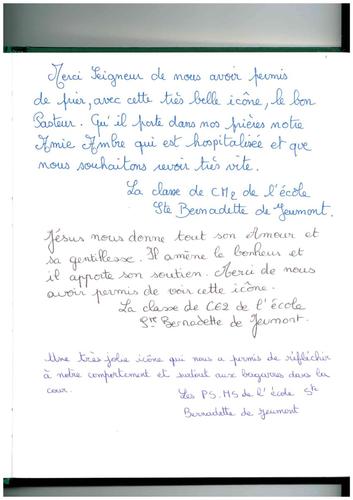 Merci Seigneur de nous avoir permis
de prier, avec cette très belle icône, le bon
Pasteur. Qu'il porte dans nos prières notre
Amie Ambre qui est hospitalisée et que
nous souhaitons revoir très vite.
La classe de CM2 de l'école
Ste Bernadette de Jeumont.
Jésus nous donne tout son Amour et
sa gentillesse. Il amène le bonheur et
il apporte son soutien. Merci de nous
avoir permis de voir cette icône.
La classe de CE2 de l'école
Ste Bernadette de Jeumont.
Une très jolie icône qui nous a permis de réfléchir
à notre comportement et surtout aux bagarres dans la
cour.
Les PS-MS de l'école Ste
Bernadette de Jeumont